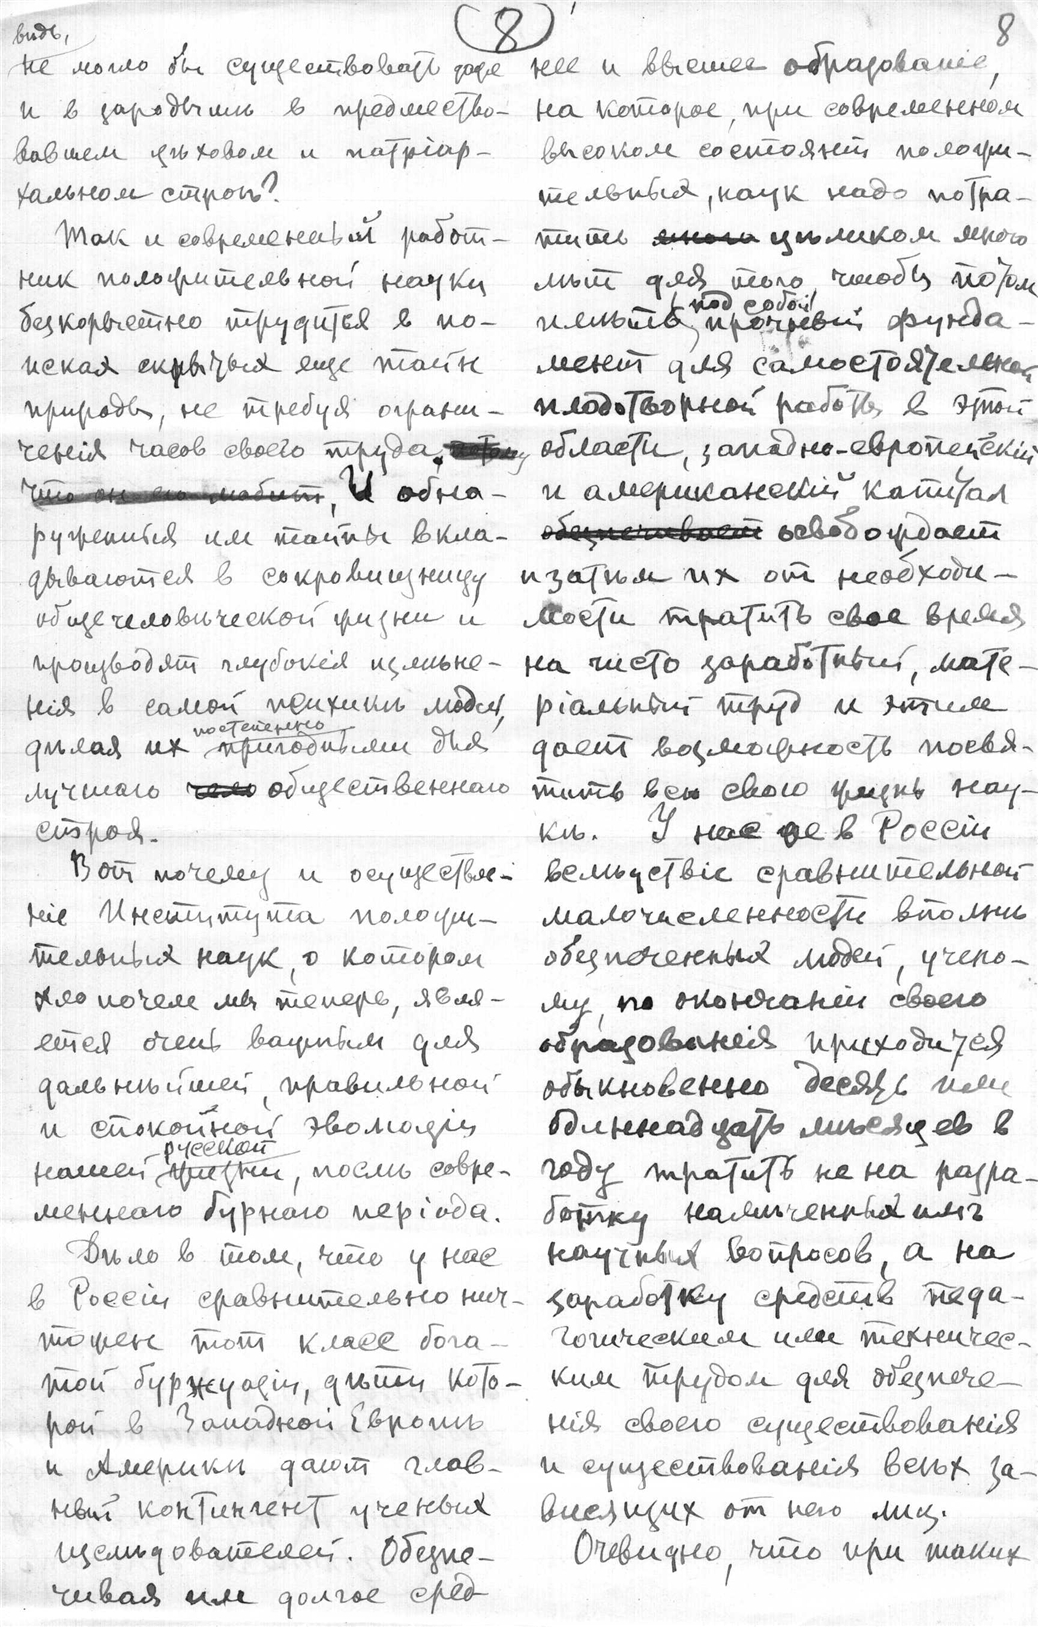 (8)
8
видь,
не могло бы существовать даже
и в зародышѣ в предшество-
вавшем цѣховом и патріар-
хальном строѣ?
Так и современный работ-
ник положительной науки
безкорыстно трудится в по-
исках скрытых еще тайн
природы, не требуя ограни-
ченія часов своего труда, потому
что он его любит, И обна-
руженныя им тайны вкла-
дываются в сокровищницу
общечеловѣческой жизни и
производят глубокія измѣне-
нія в самой психикѣ людей,
постепенно
дѣлая их пригодными для
лучшаго общественнаго
строя.
Вот почему и осуществле-
ніе Института положи-
тельных наук, о котором
хлопочем мы теперь, явля-
ется очень важным для
дальнѣйшей, правильной
и спокойной эволюціи
русской
нашей жизни, послѣ совре-
меннаго бурнаго періода.
Дѣло в том, что у нас
в Россіи сравнительно нич-
тожен тот класс бога-
той буржуазіи, дѣти кото-
рой в Западной Европѣ
и Америкѣ дают глав-
ный контингент ученых
изслѣдователей. Обезпе-
чивая им долгое сред
нее и высшее образованіе,
на которое, при современном
высоком состояніи положи-
тельных, наук надо потра-
тить много цѣликом много
лѣт для того, чтобы потом
под собой
имѣть прочный фунда-
мент для самостоятельной
плодотворной работы в этой
области, западно-европейскій
и американскій капитал
обезпечивает освобождает
и затѣм их от необходи-
мости тратить свое время
на чисто заработный, мате-
ріальный труд и этим
дает возможность посвя-
тить всю свою жизнь нау-
кѣ. У нас же в Россіи
вслѣдствіе сравнительной
малочисленности вполнѣ
обезпеченных людей, учено-
му, по окончаніи своего
образованія приходится
обыкновенно десять или
одиннадцать мѣсяцев в
году тратить не на разра-
ботку намѣченных имъ
научных вопросов, а на
заработку средств педа-
гогическим или техничес-
ким трудом для обезпече-
нія своего существованія
и существованія всѣх за-
висящих от него лиц.
Очевидно, что при таких